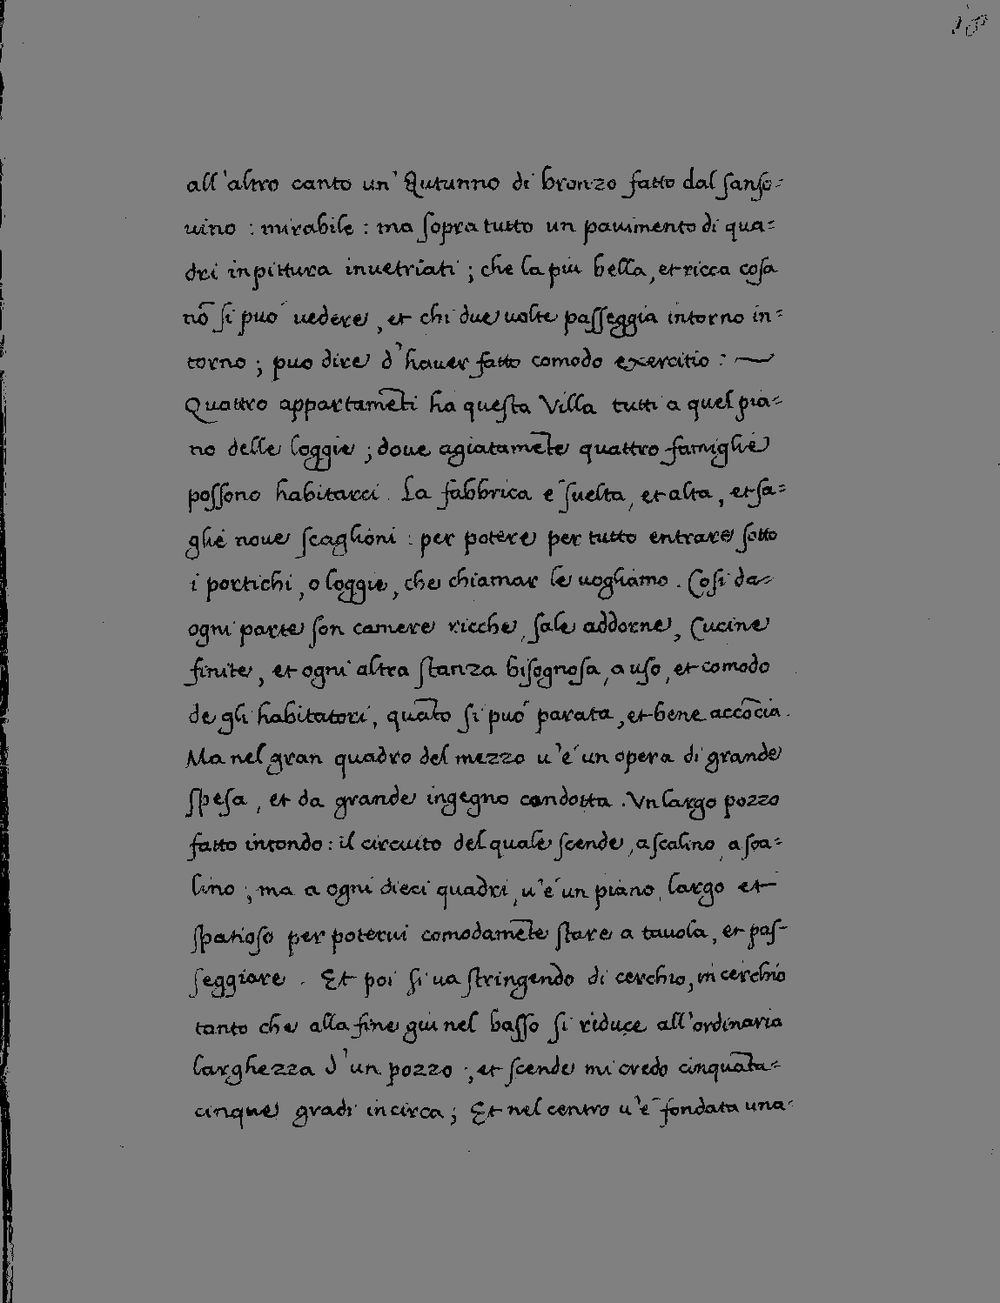 18
all'altro canto un' Autunno di bronzo fatto dal ſanſo=
uino : mirabile : ma ſopra tutto un pauimento di qua=
dri inpittura inuetriati ; che la piu bella, et ricca coſa
nõ ſi puo' uedere, et chi due uolte paſſeggia intorno in=
torno ; puo dire d'hauer fatto comodo exercitio : ~
Quattro appartamẽti ha queſta Villa tutti a quel pia=
no delle loggie ; doue agiatamẽte quattro famiglie
poſſono habitarci. La fabbrica e' ſuelta, et alta, et ſa=
glie noue ſcaglioni : per potere per tutto entrare ſotto
i portichi, o loggie, che chiamar le uogliamo. Coſi da=
ogni parte ſon camere ricche, ſale addorne, Cucine
finite, et ogni altra ſtanza biſognoſa, a uſo, et comodo
de gli habitatori, quãto ſi puo' parata, et bene accõcia.
Ma nel gran quadro del mezzo u'e' un opera di grande
ſpeſa, et da grande ingegno condotta. Vn largo pozzo
fatto intondo : il circuito del quale ſcende, a ſcalino, a ſca=
lino ; ma a ogni dieci quadri, u'e' un piano, largo et
ſpatioſo per poterui comodamẽte ſtare a tauola, et paſ-
ſeggiare. Et poi ſi ua ſtringendo di cerchio, in cerchio
tanto che alla fine giu nel baſſo ſi riduce all'ordinaria
larghezza d'un pozzo ; et ſcende mi credo cinquãta=
cinque gradi incirca ; Et nel centro u'e' fondata una=